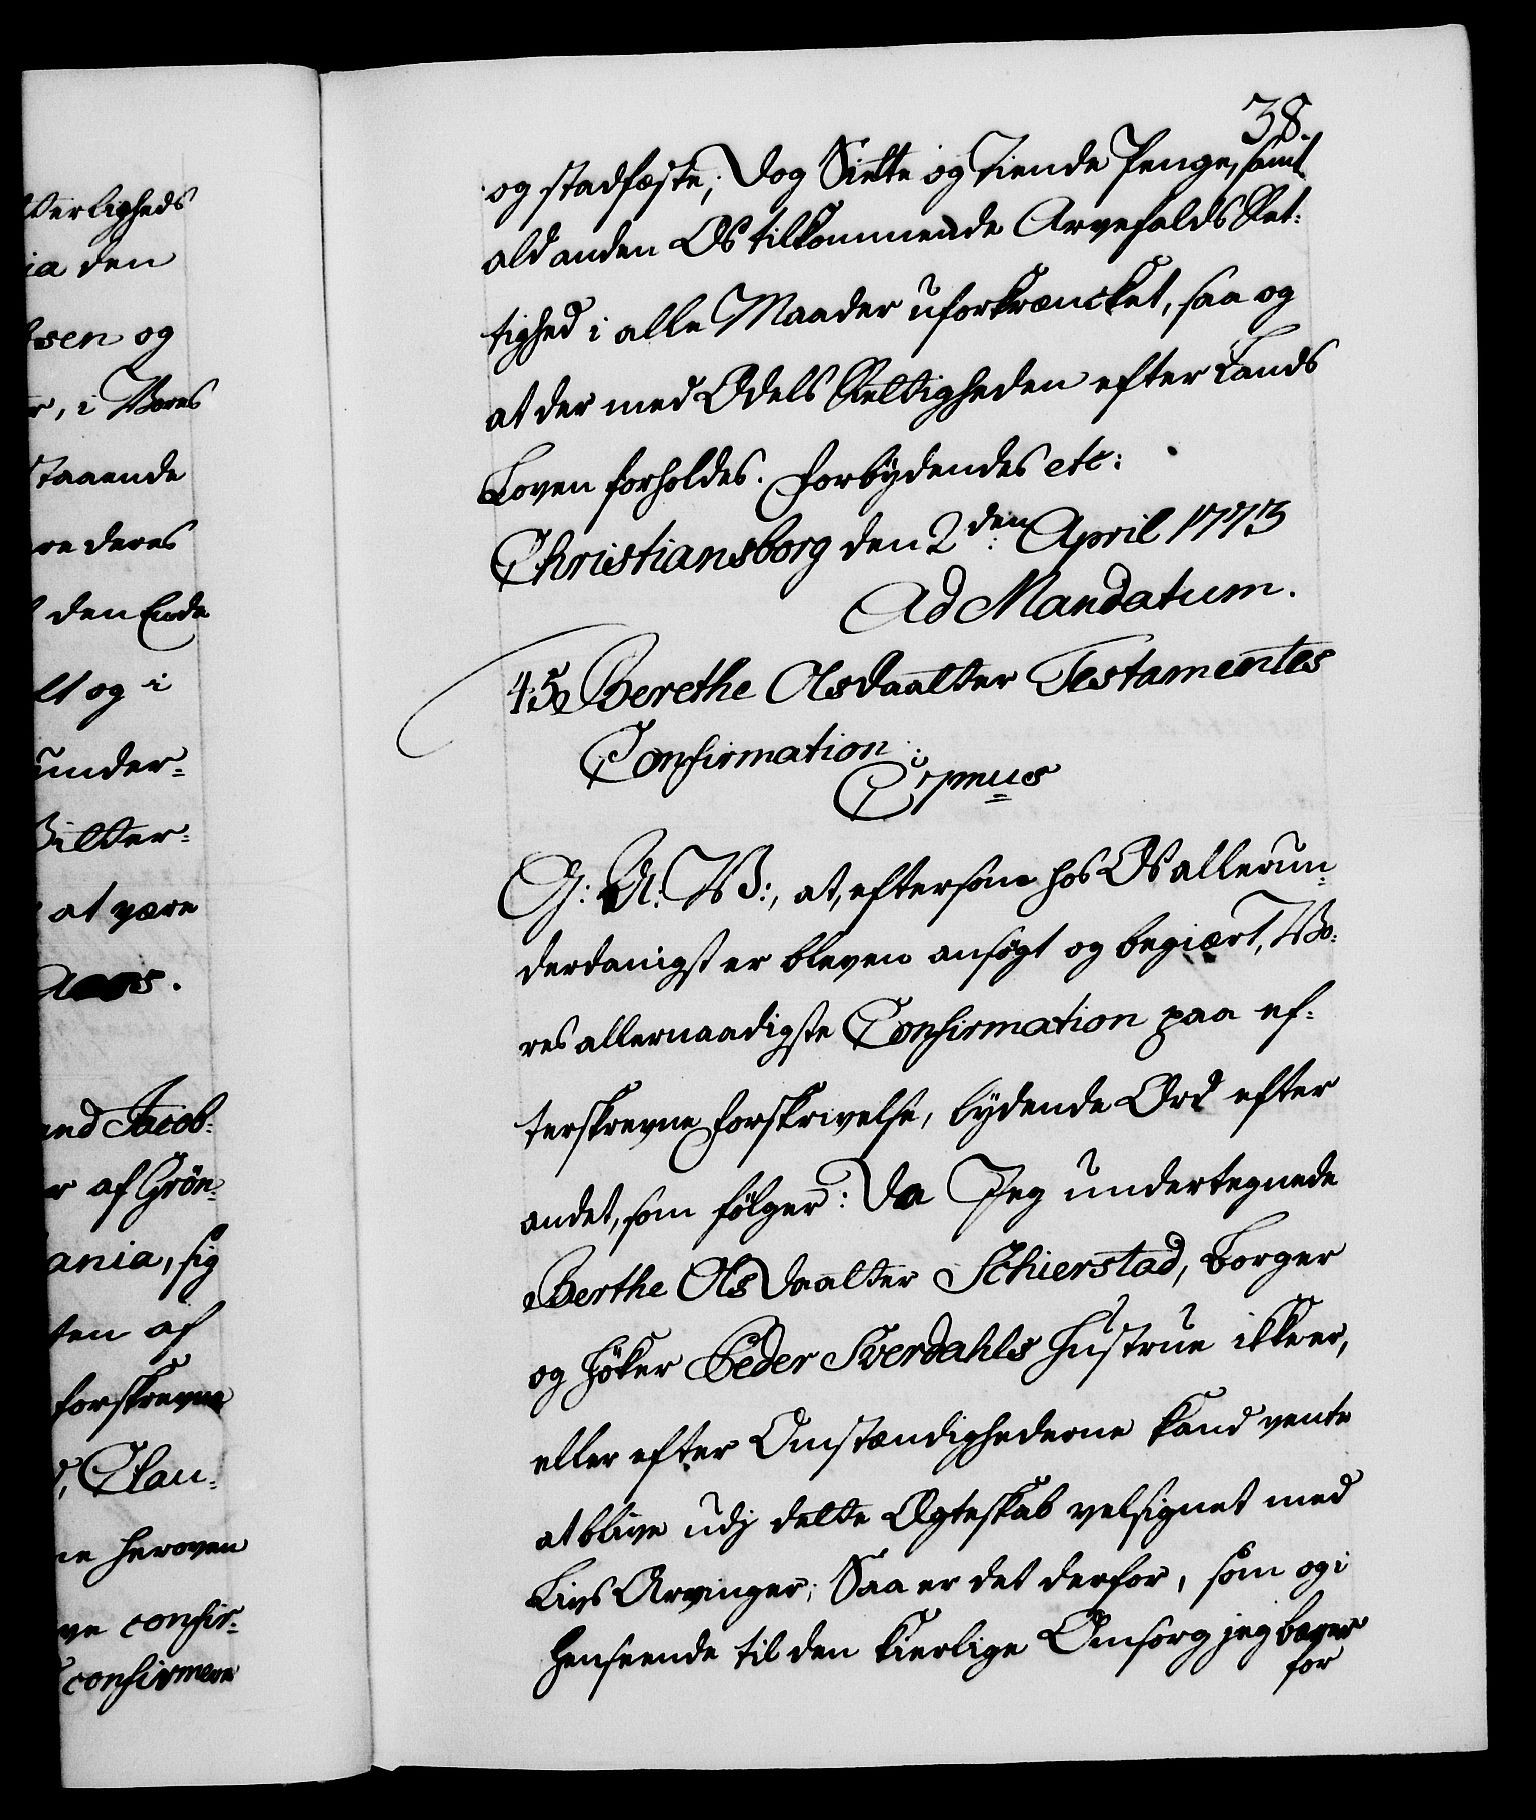 38.
og stadfæste; dog Siette og Tiende Penge, samt
ald anden Os tilkommende Arvefalds Ret-
tighed i alle Maader uforkræncket, saa og
at der med Odels Rettigheden efter Lands
Loven forholdes. Forbydendes etc:
Christiansborg den 2den April 1773
Ad Mandatum.
45 Berethe Olsdaatter Testamentes
Confirmation:
C 7mus
G: A: V:, at, eftersom hos Os allerun-
derdanigst er bleven ansøgt og begiært, Vo-
res allernaadigste Confirmation paa ef-
terskrevne Forskrivelse, lydende Ord efter
andet, som følger: Da Jeg undertegnede
Berthe Ols Daatter Schierstad, Borger
og Høker Peder Sverdahls Hustrue ikke er,
eller efter Omstændighederne kand vente
at blive udj dette Ægteskab velsignet med
Livs Arvinger; Saa er det derfor, som og i
Henseende til den kierlige Omsorg jeg bærer
for
erligheds
ia den
sen og
r, i Vores
staaende
re deres
den Ende
lt og i
under-
at være
and Jacob-
r af Grøn-
ania, sig
ten af
forskrevne
Clau-
ne heroven
ve confir-
confirmere